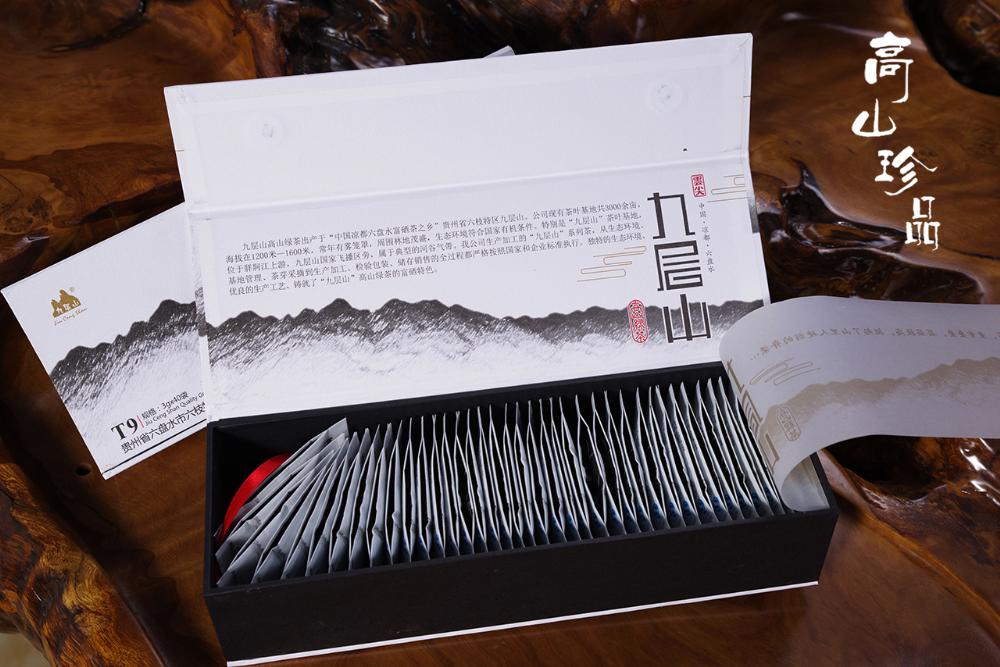 高山珍品
雲尖
中国·凉都·六盘水
九层山
高山绿茶
九层山高山绿茶出产于“中国凉都六盘水富硒茶之乡”贵州省六枝特区九层山。公司现有茶叶基地共3000余亩，
海拔在1200米—1600米，常年有雾笼罩，周围林地茂盛，生态环境符合国家有机条件。特别是“九层山”茶叶基地，
位于牂牁江上游，九层山国家飞播区旁，属于典型的河谷气候。我公司生产加工的“九层山”系列茶，从生态环境、
基地管理、茶芽采摘到生产加工、检验包装、储存销售的全过程都严格按照国家和企业标准执行。独特的生态环境，
优良的生产工艺、铸就了“九层山”高山绿茶的富硒特色。
九层山
Jiu Ceng Shan
T9
规格：3g×40袋
Jiu Ceng Shan Quality G
贵州省六盘水市六枝